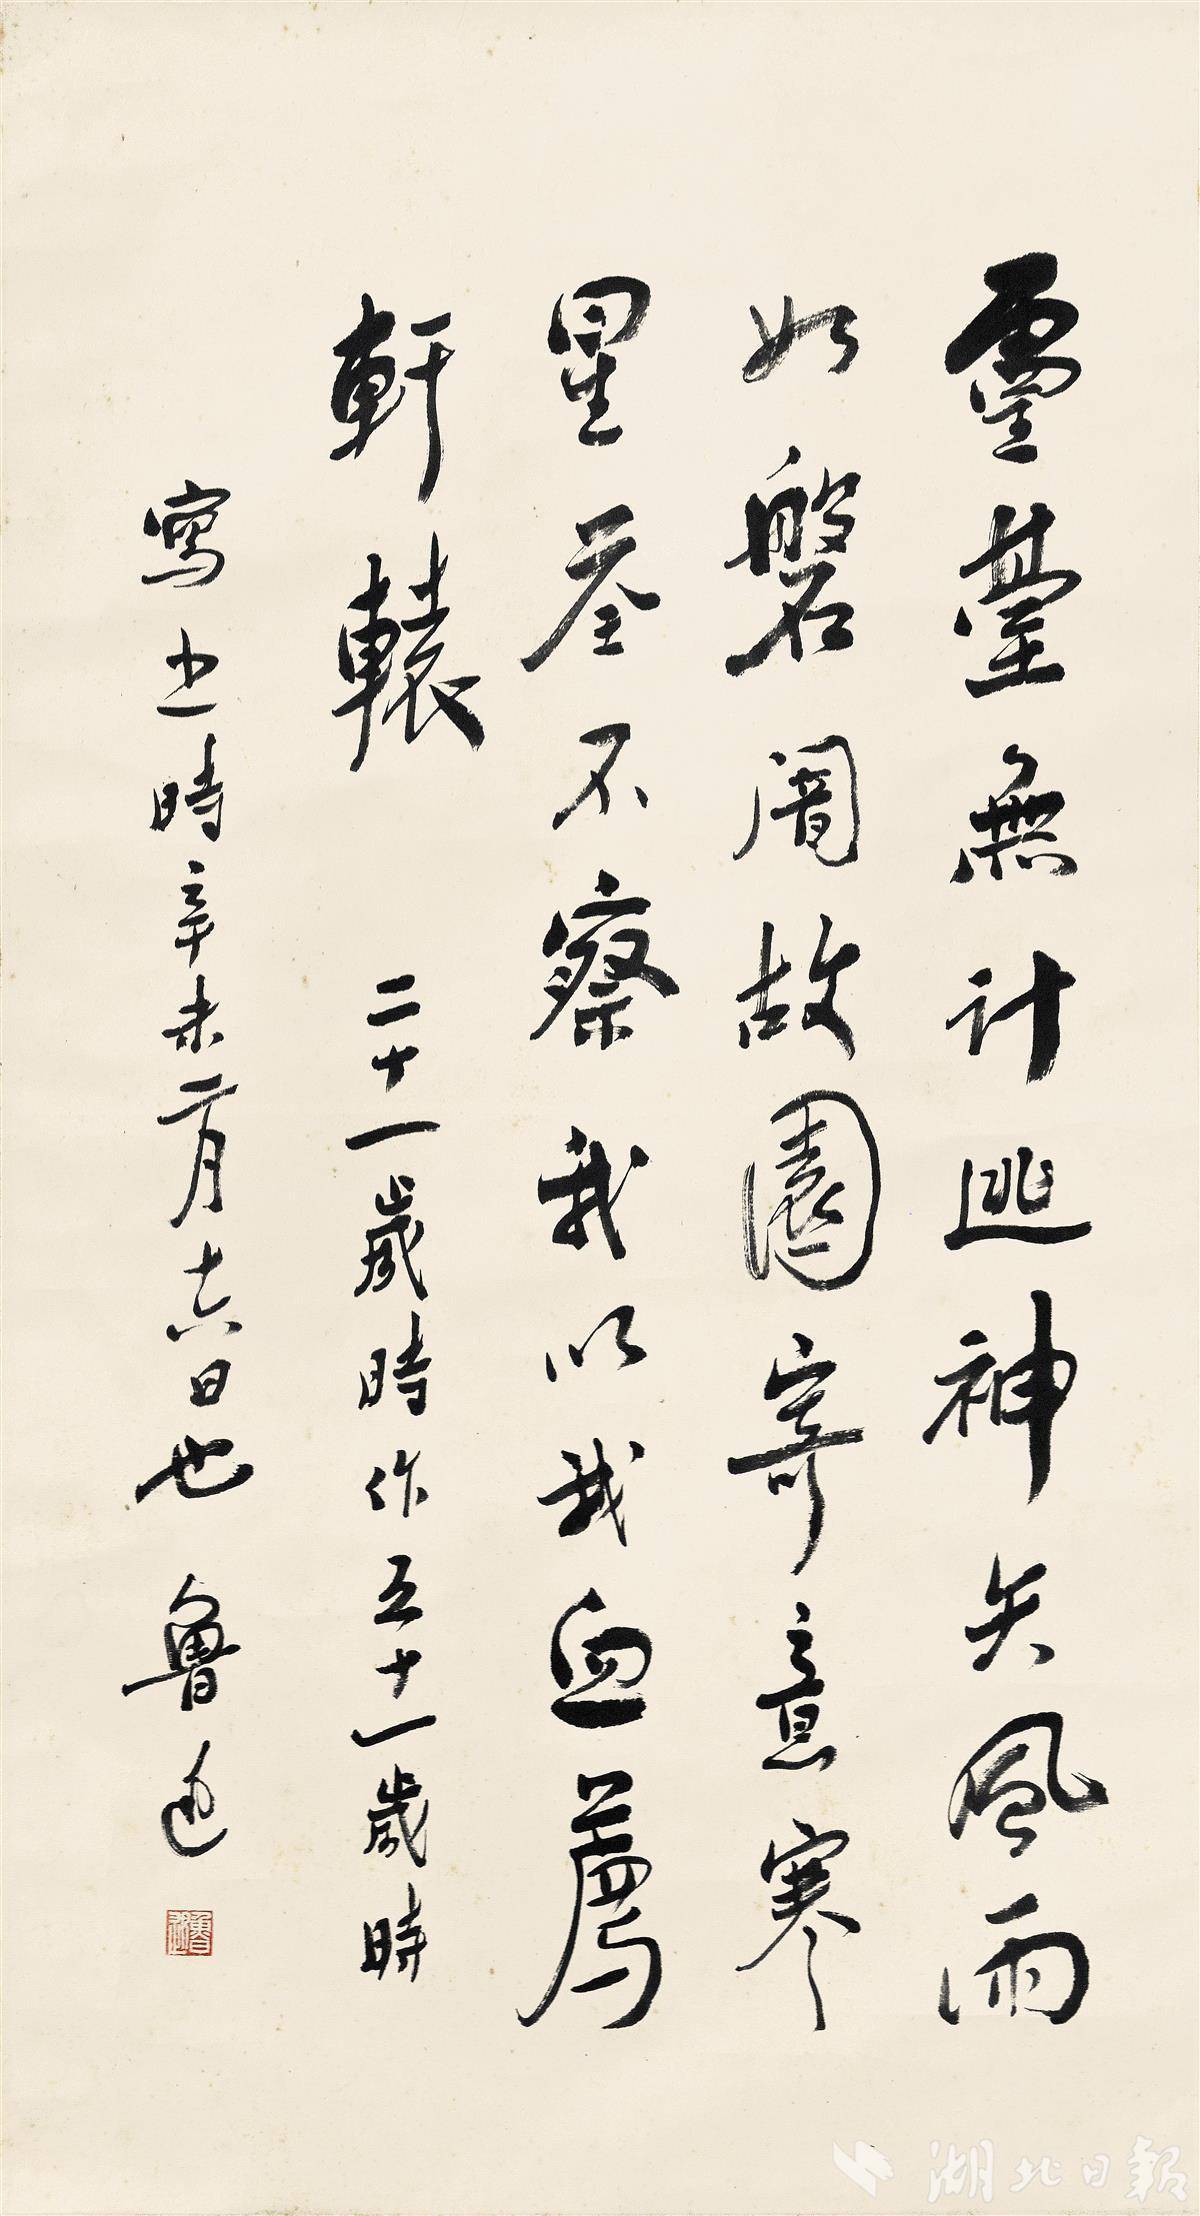 靈臺無計逃神矢風雨
如磐闇故園寄意寒
星荃不察我以我血薦
軒轅
二十一歲時作五十一歲時
寫之時辛未二月十六日也 魯迅
魯迅
湖北日報